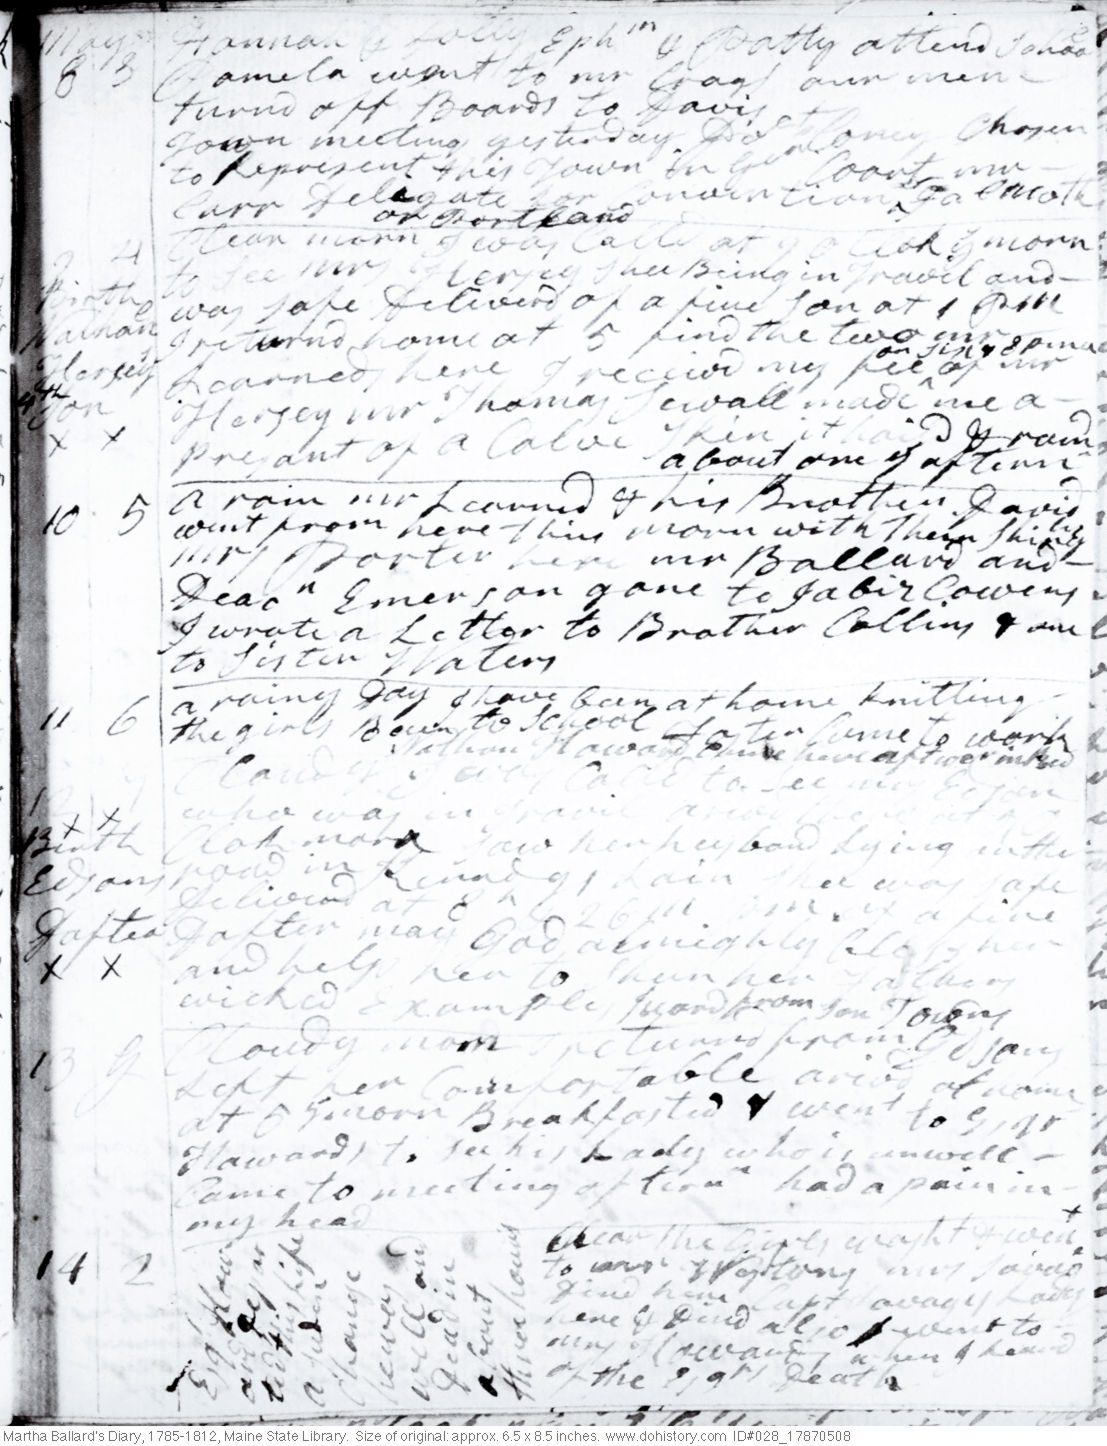 May
8 3 Hannah & Dolly Ephm & Patty attend School
Pamela went to mr Craggs our men
turnd off Boards to Davis
Town meeting yesterday Coney Chosen
to Represent this Town in Genl Coart mr
Carr Delegate for Convention at Falmoth
or Portland
9 4 Clear morn I was Calld at 9 o Clok y morn
to see Mrs Hersey shee Being in Travil and
Birth
was safe Deliverd of a fine son at 1 pm
Nathan
I returnd home at 5 find the two mr
Hersey
Learneds here I receivd my fee of mr
on Jst & Epma
4th
son
Hersey mr Thomas Sewall made me a
X X
Presant of a Calve Skin it haild & raind
about one y aftern
10 5 A rain mr Learned & his Brother David
went from here this morn with their Shingles
Mrs Porter here mr Ballard and
Deacn Emerson gone to Jabiz Cowens
I wrote a Letter to Brother Collins & one
to Sister Waters
11 6 a rainy Day I have been at home knitting
the girls Been to School Foster Came to work
Nathan Haward
Cloudy I was Calld to See mrs Edson
who was in Travil
X X
Birth
Clok morn saw her husband Lying in the
Edsons
road in shee was safe
Deliverd at 8 h & 26 m a fine
Dafter
Dafter may God almighty bless her
X X
and help her to shun her Fathers
wicked Example from Son Towns
13 G Cloudy morn I returnd from Edsons
Left her Comfortable arivd at home
at 5 y morn Breakfasted & went to Esqr
Hawards to see his Lady who is unwell
Came to meeting aftern had a pain in
my head
14 2 Clear the Girls washt & went
to Westons mrs Savage
Dind here Capt Savages Lady
here & Dind also I went to
mrs Howards when I heard
of the Esqrs Death
Esqr Howard
a suden
Change
he was
well and
Dead in
about
three hours
Martha Ballard's Diary, 1785-1812, Maine State Library. Size of original: approx. 6.5 x 8.5 inches. www.dohistory.com ID#028_17870508